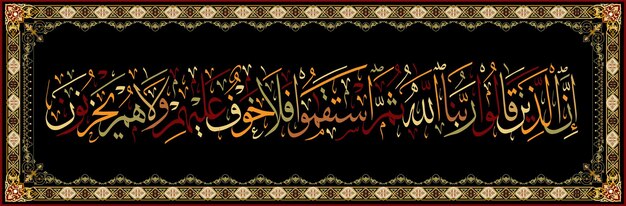 إِنَّ الَّذِينَ قَالُوا رَبُّنَا اللَّهُ ثُمَّ اسْتَقَامُوا فَلَا خَوْفٌ عَلَيْهِمْ وَلَا هُمْ يَحْزَنُونَ